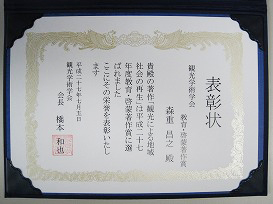 表彰状
観光学術学会
教育・啓蒙著作賞
森重 昌之 殿
貴殿の著作『観光による地域
社会の再生』は平成二十七
年度教育・啓蒙著作賞に選
ばれました
ここにその栄誉を表彰いたし
ます
平成二十七年七月五日
観光学術学会
会長 橋本 和也